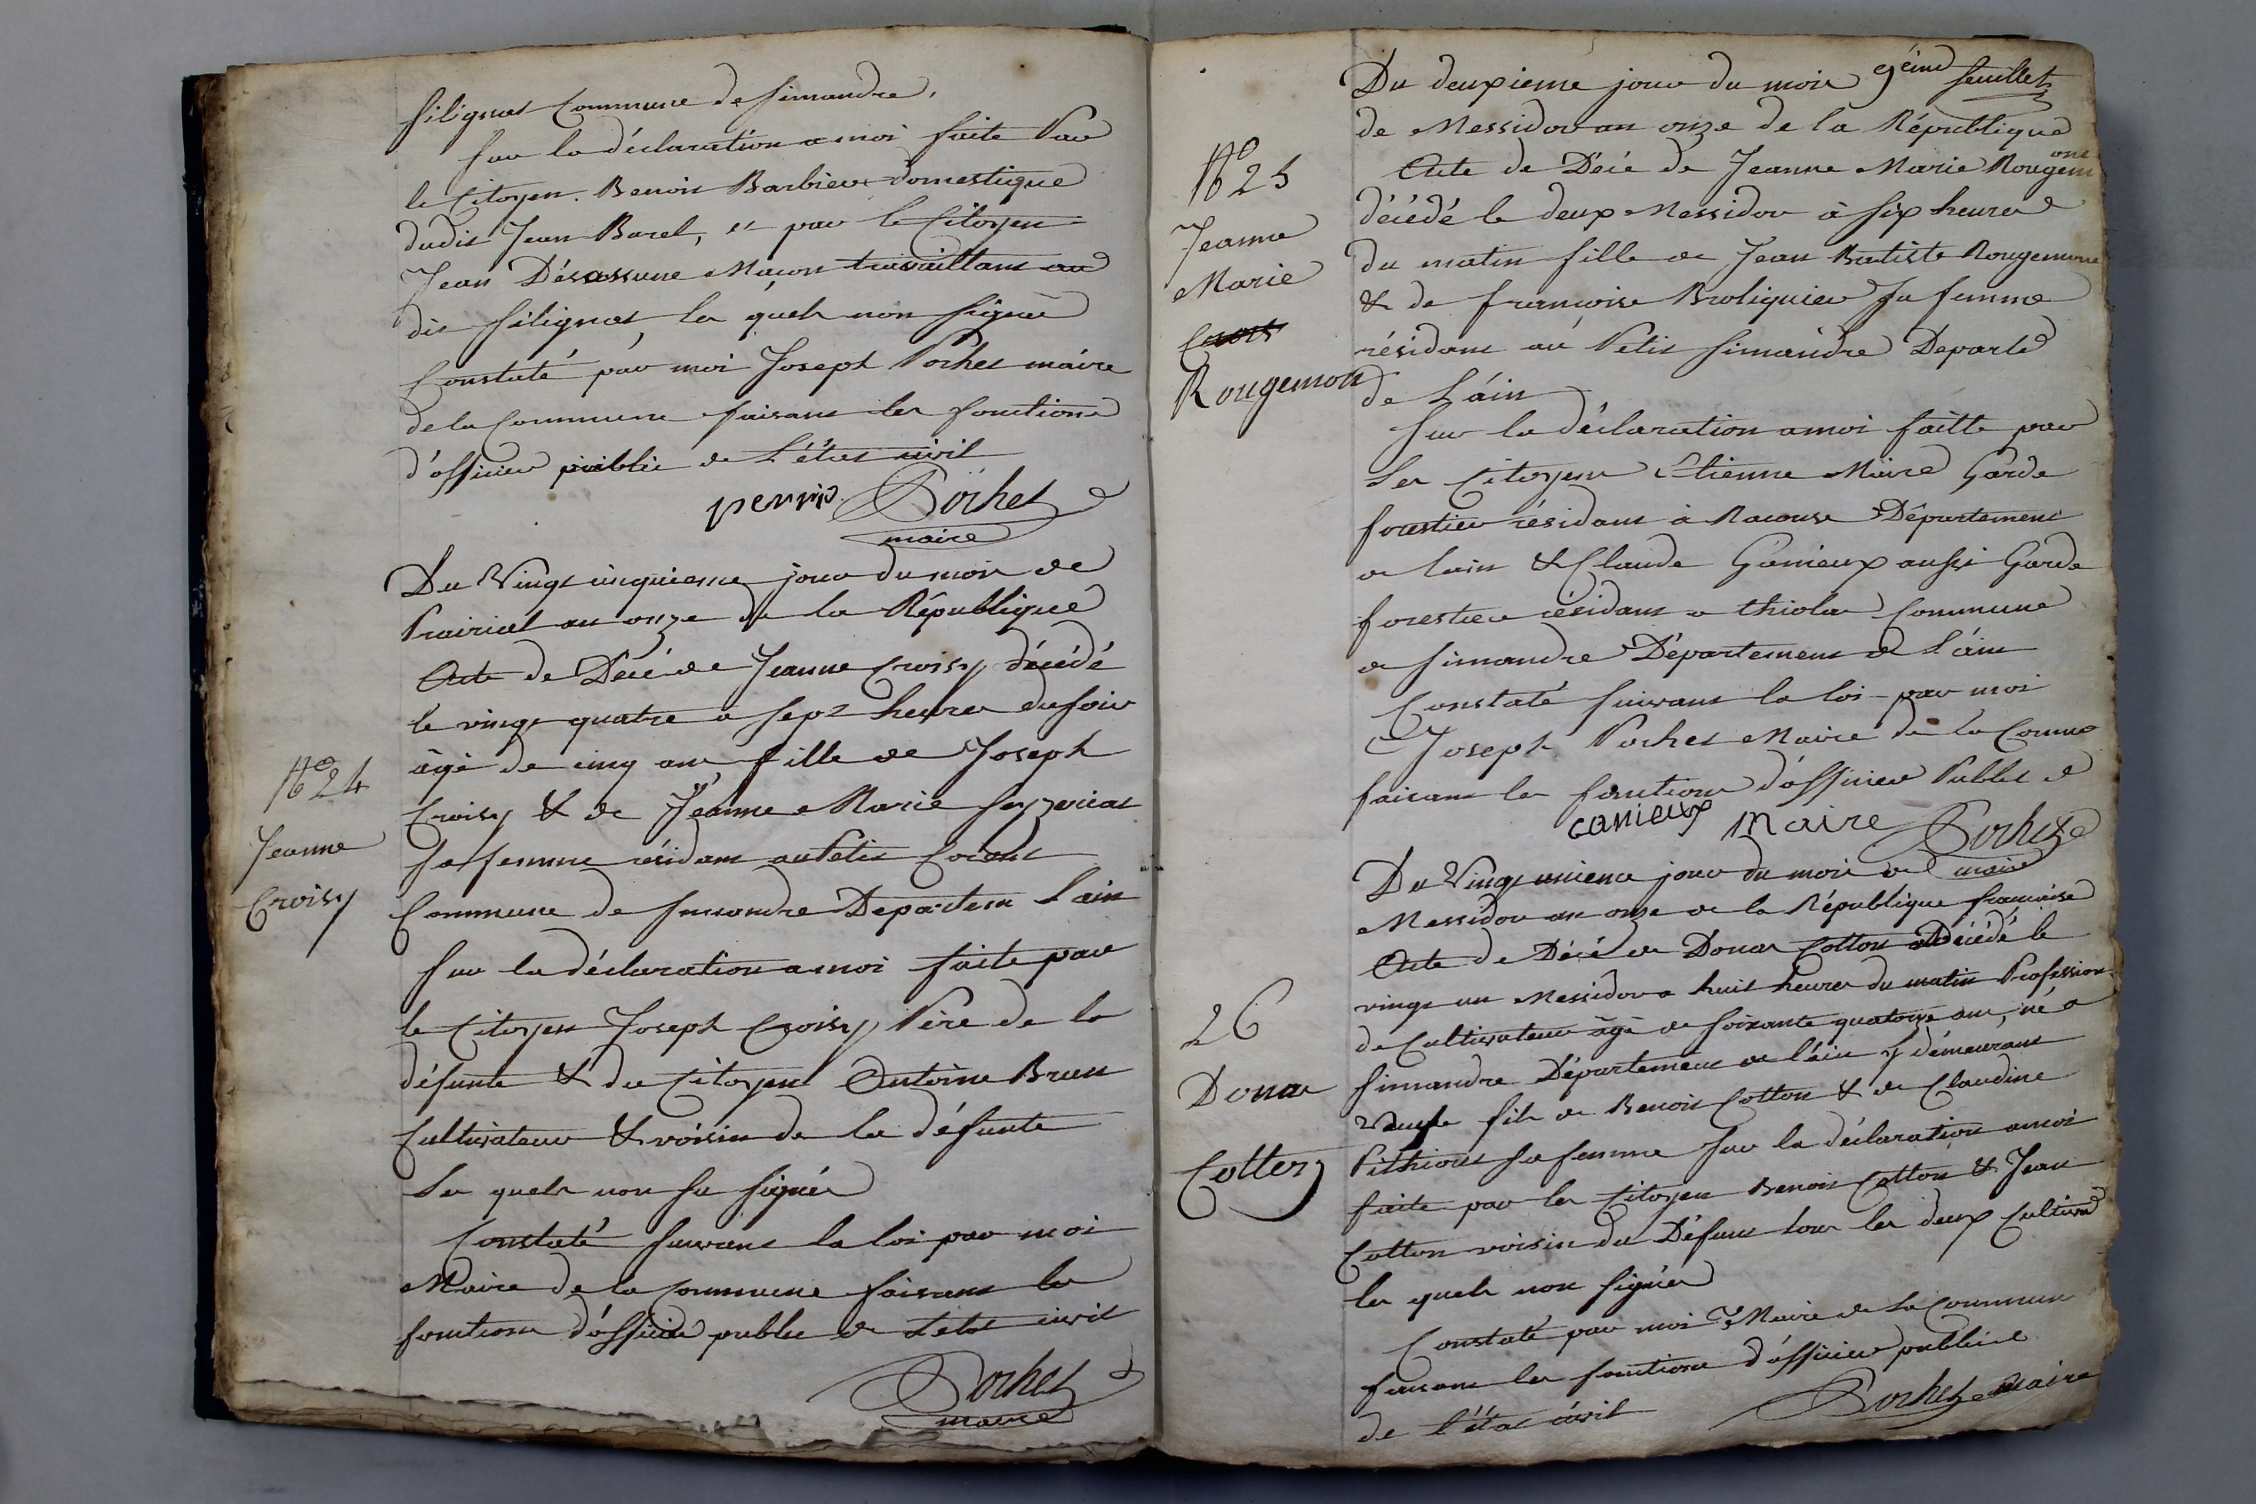 Silignat Commune de Simandre,
Sur la déclaration a moi faite Par
le Citoyen Benoit Barbier domestique
dudit Jean Borel, et par le Citoyen
Jean Maçon travaillant au
dit Silignat, les quels non signés
Constaté par moi Joseph Pochet maire
de la Commune faisant les fonctions
d'officier public de L'état civil
pernio Pochet
maire
Du Vingt cinquieme jour du mois de
Prairial an onze de la République
Acte de Décé de Jeanne Croisy décédé
le vingt quatre a sept heures du soir
âgé de cinq ans, fille de Joseph
Croisy & de Jeanne Marie
Sa femme résidant au Petit Corent
Commune de Simandre Departem L'ain
Sur la déclaration a moi faite par
le Citoyen Joseph Croisy Père de la
défunte & du Citoyen Antoine Brun
Cultivateur & voisin de la défunte
Les quels non su signér
Constaté suivant la loi par moi
Maire de la Commune faisant les
fonctions d'officier public de L'etat civil
Pochet
maire
No 24
Jeanne
Croisy
9éime feuillet
Du deuxieme jour du mois
de Messidor an onze de la République
Acte de Décé de Jeanne Marie Rougemont
décédé le deux Messidor à six heures
du matin fille de Jean Batiste Rougemont
& de francoise Broliquier Sa femme
résidant au Petit Simandre Departe
de L'áin
Sur la déclaration a moi faitte par
Les Citoyens Etienne Maire Garde
forestier résidant à Racouse Département
de Lain & Claude Ganieux aussi Garde
forestier résidant a thiolas Commune
de Simandre Département de L'áin
Constaté suivant la loi par moi
Joseph Pochet Maire de la Commne
faisant les fonctions d'officier Public
canieux maire Pochet
maire
No 25
Jeanne
Marie
Rougemon
Du Vingt unieme jour du mois de
Messidor an onze de la République francaise
Acte de Décé de Donat Cotton Décédé le
vingt un Messidor a huit heures du matin Profession
de Cultivateur âgé de soixante quatorze ans, né a
Simandre Département de l'áin y démeurant
fils de Benoit Cotton & de Claudine
Pithion Sa femme Sur la déclaration a moi
faite par les Citoyen Benoit Cotton & Jean
Cotton voisin du Défunt tous les deux Cultive
les quels non signés
Constaté par moi Maire de La Commune
faisant les fonctions d'officier public
de L'état civil
Pochet maire
26
Donat
Cotton